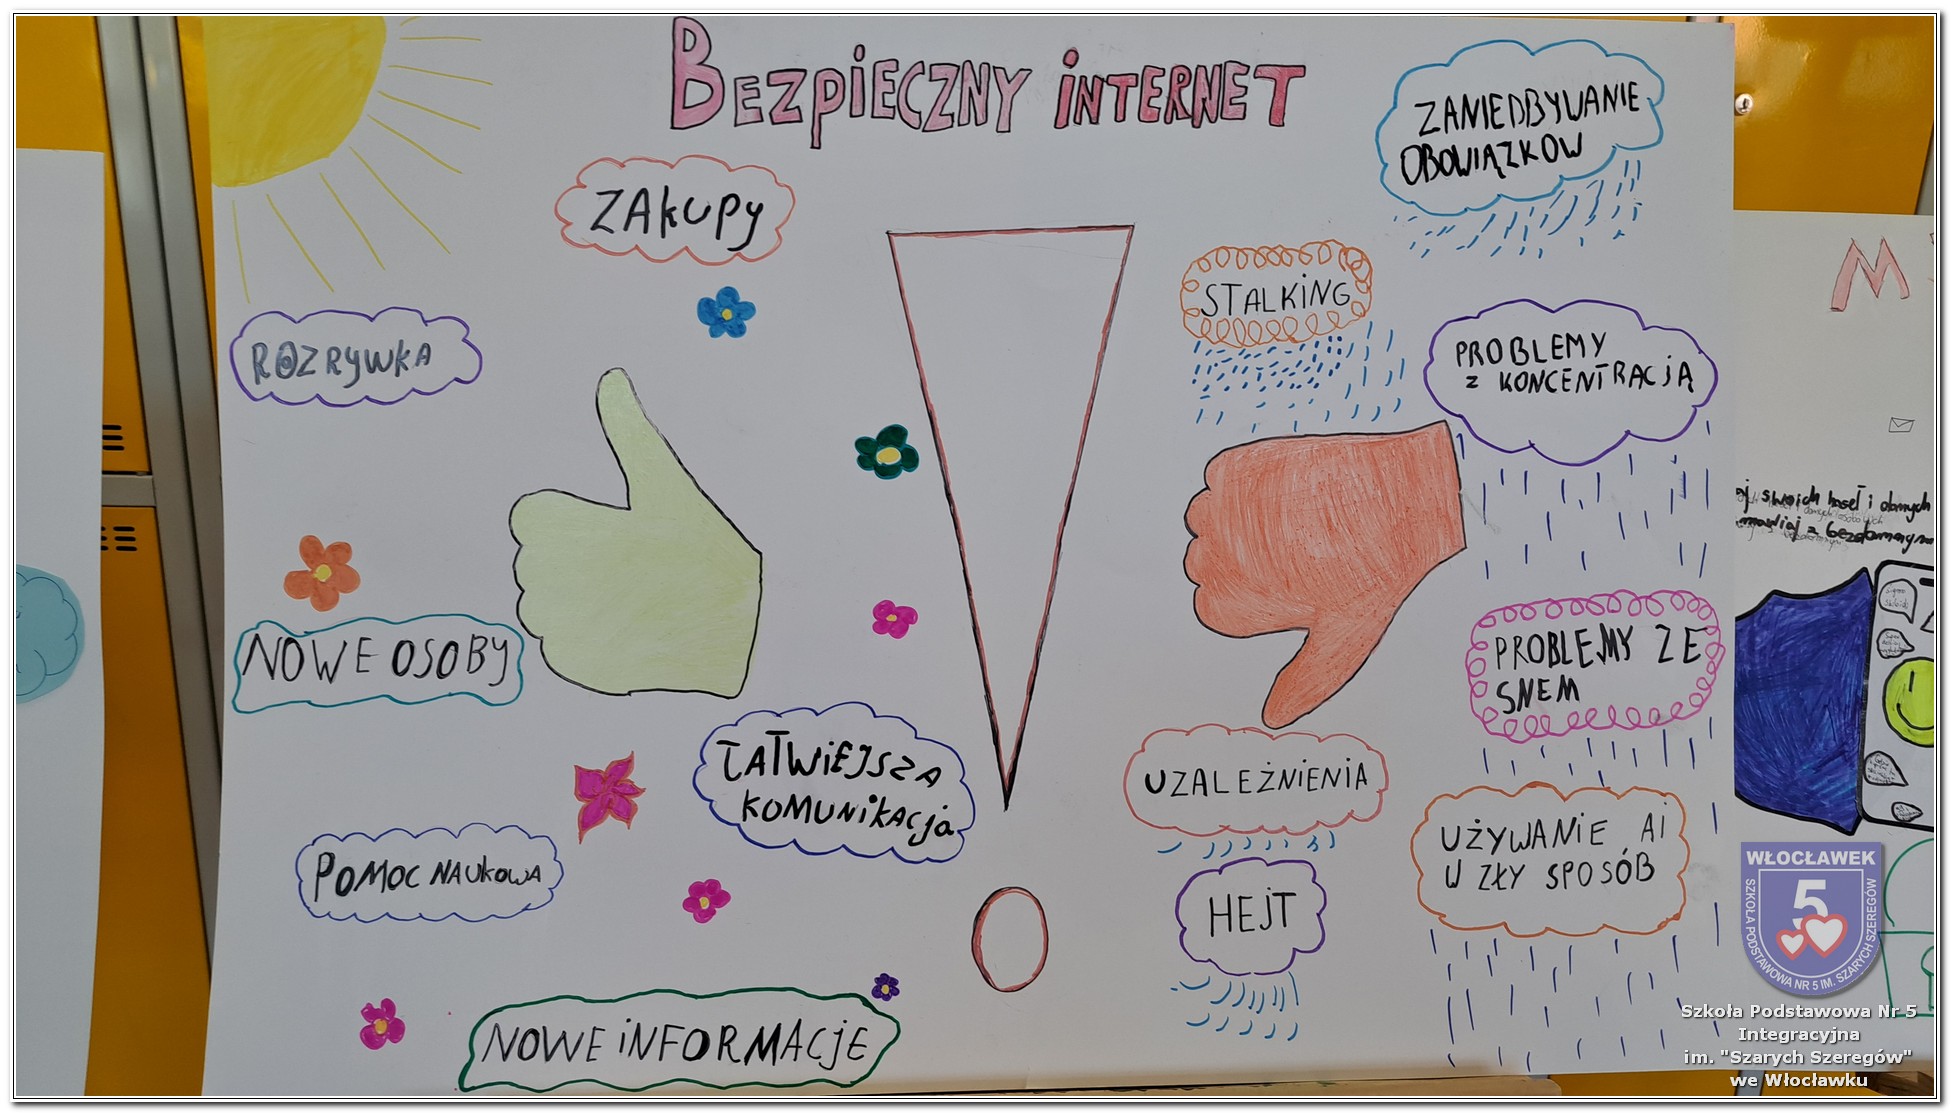 BEZPIECZNY INTERNET
ZAKUPY
ROZRYWKA
NOWE OSOBY
ŁATWIEJSZA
KOMUNIKACJA
POMOC NAUKOWA
NOWE INFORMACJE
ZANIEDBYWANIE
OBOWIĄZKÓW
STALKING
PROBLEMY
z KONCENTRACJĄ
PROBLEMY ZE
SNEM
UZALEŻNIENIA
UŻYWANIE AI
W ZŁY SPOSÓB
HEJT
M
swoich haseł i danych
z
WŁOCŁAWEK
5
SZKOŁA PODSTAWOWA NR 5 IM. SZARYCH SZEREGÓW
Szkoła Podstawowa Nr 5
Integracyjna
im. "Szarych Szeregów"
we Włocławku